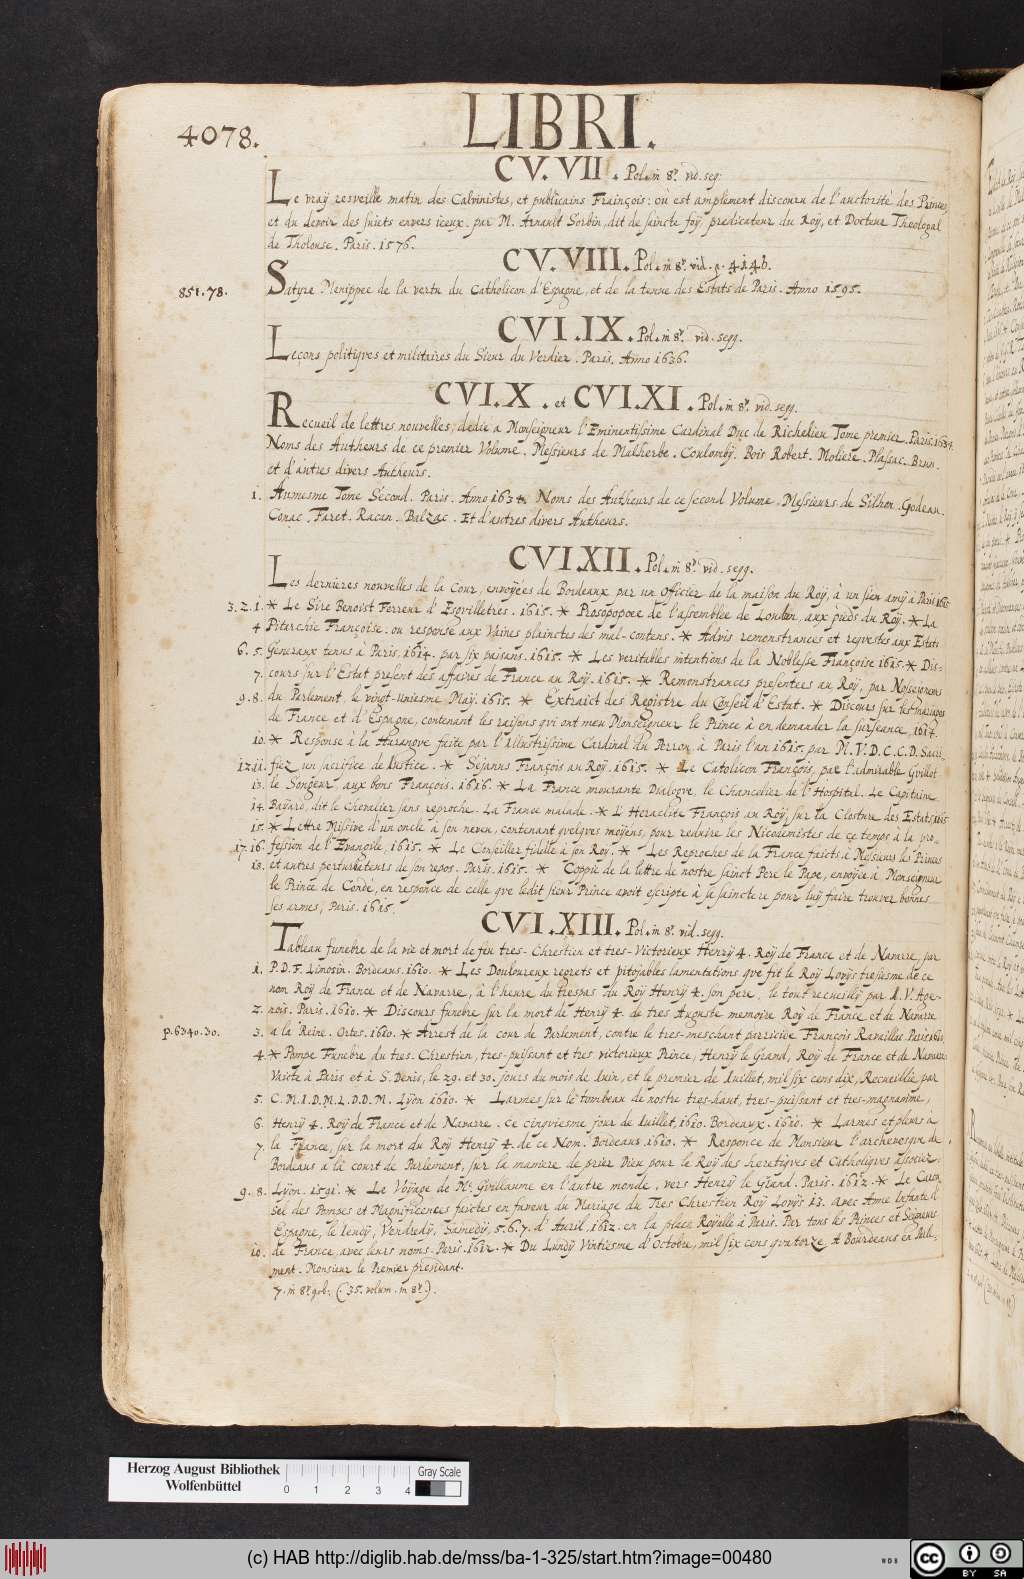 4078.
LIBRI.
CV. VII. Pol. in 8º. vid. seq:
Le vray resveille matin des Calvinistes, et publicains François: où est amplement discouru de l'auctorité des Princes,
et du devoir des suiets envers iceux. par M. Arnault Sorbin, dit de saincte foy, predicateur du Roy, et Docteur Theologal
de Tholouse. Paris. 1576.
CV. VIII. Pol. in 8º. vid. p. 4146.
851.78.
Satyre Menippee de la vertu du Catholicon d'Espagne, et de la tenue des Estats de Paris. Anno 1595.
CVI. IX. Pol. in 8º. vid. seqq.
Leçons politiqves et militaires du Sieur du Verdier. Paris. Anno 1636.
CVI. X. et CVI. XI. Pol. in 8º. vid. seqq.
Recueil de lettres nouvelles, dedie a Monseigneur l'Eminentissime Cardinal Duc de Richelieu Tome premier. Paris. 1634.
Noms des Autheurs de ce premier Volume. Messieurs de Malherbe. Coulomby. Bois Robert. Moliere. Plassac. Brun.
et d'autres divers Autheurs.
1. Aumesme Tome Second. Paris. Anno 1634. Noms des Autheurs de ce second Volume. Messieurs de Silhon. Godeau.
Conac. Faret. Racan. Balzac. Et d'autres divers Autheurs.
CVI. XII. Pol. in 8º. vid. seqq.
Les dernieres nouvelles de la Cour, envoyées de Bordeaux par un Officier de la maison du Roy, à un sien amy à Paris 1615
3. 2. 1. * Le Sire Benoist Ferreur d'Esqvilletres. 1615. * Prosopopoee de l'assemblee de Loudun, aux pieds du Roy. * La
4 Pitarchie Françoise. ou response aux Vaines plainctes des mal-contens. * Advis remonstrances et reqvestes aux Estats
6. 5. Generaux tenus à Paris. 1614. par six paisans. 1615. * Les veritables intentions de la Noblesse Françoise 1615. * Dis-
7. cours sur l'Estat present des affaires de France au Roy. 1615. * Remonstrances presentees au Roy, par Nosseigneurs
9. 8. du Parlement, le vingt-uniesme May. 1615. * Extraict des Registre du Conseil d'Estat. * Discours sur les mariages
de France et d'Espagne, contenant les raisons qvi ont meu Monseigneur le Prince à en demander la surseance. 1614.
10. * Response à la Harangve faite par l'Illustrissime Cardinal du Perron à Paris l'an 1615. par M. V. D. C. C. D. Sacri
12. 11. fiez un sacrifice de Iustice. * Sejanus François au Roy. 1615. * Le Catolicon François, par l'admirable Gvillot
13. le Songeur, aux bons François. 1616. * La France mourante Dialogve, le Chancelier de l'Hospital. Le Capitaine
14. Bayard, dit le Chevalier sans reproche. La France malade. * L'Heraclite François au Roy, sur la Closture des Estats 1615
15. * Lettre Missive d'un oncle a son neveu, contenant qvelqves moyens, pour reduire les Nicodemistes de ce temps à la pro-
17. 16. fession de l'Evangile. 1615. * Le Conseiller fidelle à son Roy. * Les Reproches de la France faicts à Messieurs les Princes
18. et autres perturbateurs de son repos. Paris. 1615. * Coppie de la lettre de nostre sainct Pere le Pape, envoyée à Monseigneur
le Prince de Condé, en responce de celle qve ledit sieur Prince avoit escripte à sa sainctete pour luy faire trouver bonnes
ses armes, Paris. 1615.
CVI. XIII. Pol. in 8º. vid. seqq.
Tableau funebre de la vie et mort de feu tres-Chrestien et tres-Victorieux Henry 4. Roy de France et de Navarre, par
1. P.D.F. Limosin. Bordeaus. 1610. * Les Douloureux regrets et pitoyables lamentations qve fit le Roy Lovys treziesme de ce
nom Roy de France et de Navarre, à l'heure du trespas du Roy Henry 4. son pere, le tout recueilly par A. V. Age-
2. nois. Paris. 1610. * Discours funebre sur la mort de Henry 4. de tres Auguste memoire Roy de France et de Navarre
p. 6340. 30.
3. a la Reine. Ortes. 1610. * Arrest de la cour de Parlement, contre le tres-meschant parricide François Ravaillac. Paris 1610
4. * Pompe Funebre du tres-Chrestien, tres-puissant et tres victorieux Prince, Henry le Grand, Roy de France et de Navarre
Faicte à Paris et à S. Denis, le 29. et 30. jours du mois de Iuin, et le premier de Iuillet, mil six cens dix, Recueillie par
5. C. M. I. D. M. L. D. D. M. Lyon 1610. * Larmes sur le tombeau de nostre tres-haut, tres-puissant et tres-magnanime,
6. Henry 4. Roy de France et de Navarre. Ce cinqviesme jour de Iuillet, 1610. Bordeaux. 1610. * Larmes et pleurs a
7. la France, sur la mort du Roy Henry 4. de ce Nom. Bordeaus. 1610. * Responce de Monsieur l'archevesqve de
Bordeaus à la court de Parlement, sur la maniere de prier Dieu pour le Roy des heretiqves et Catholiqves associez.
9. 8. Lyon. 1591. * Le Voyage de Mr. Gvillaume en l'autre monde, vers Henry le Grand. Paris. 1612. * Le Caron
sel des Pompes et Magnificences faictes en faveur du Mariage du Tres Chrestien Roy Lovys 13. avec Anne Infante d'
Espagne, le Ieudy, Vendredy, Samedy, 5. 6. 7. d'Avril, 1612. en la place Royalle à Paris. Par tous les Princes et Seigneurs
10. de France, avec leurs noms. Paris. 1612. * Du Lundy Vintiesme d'Octobre, mil six cens qvatorze. A Bourdeaus en Parle-
ment. Monsieur le Premier president.
7. in 8º. (35. volum. in 8º.).
Herzog August Bibliothek
Wolfenbüttel
0 1 2 3 4
Gray Scale
(c) HAB http://diglib.hab.de/mss/ba-1-325/start.htm?image=00480
WDB
cc BY SA